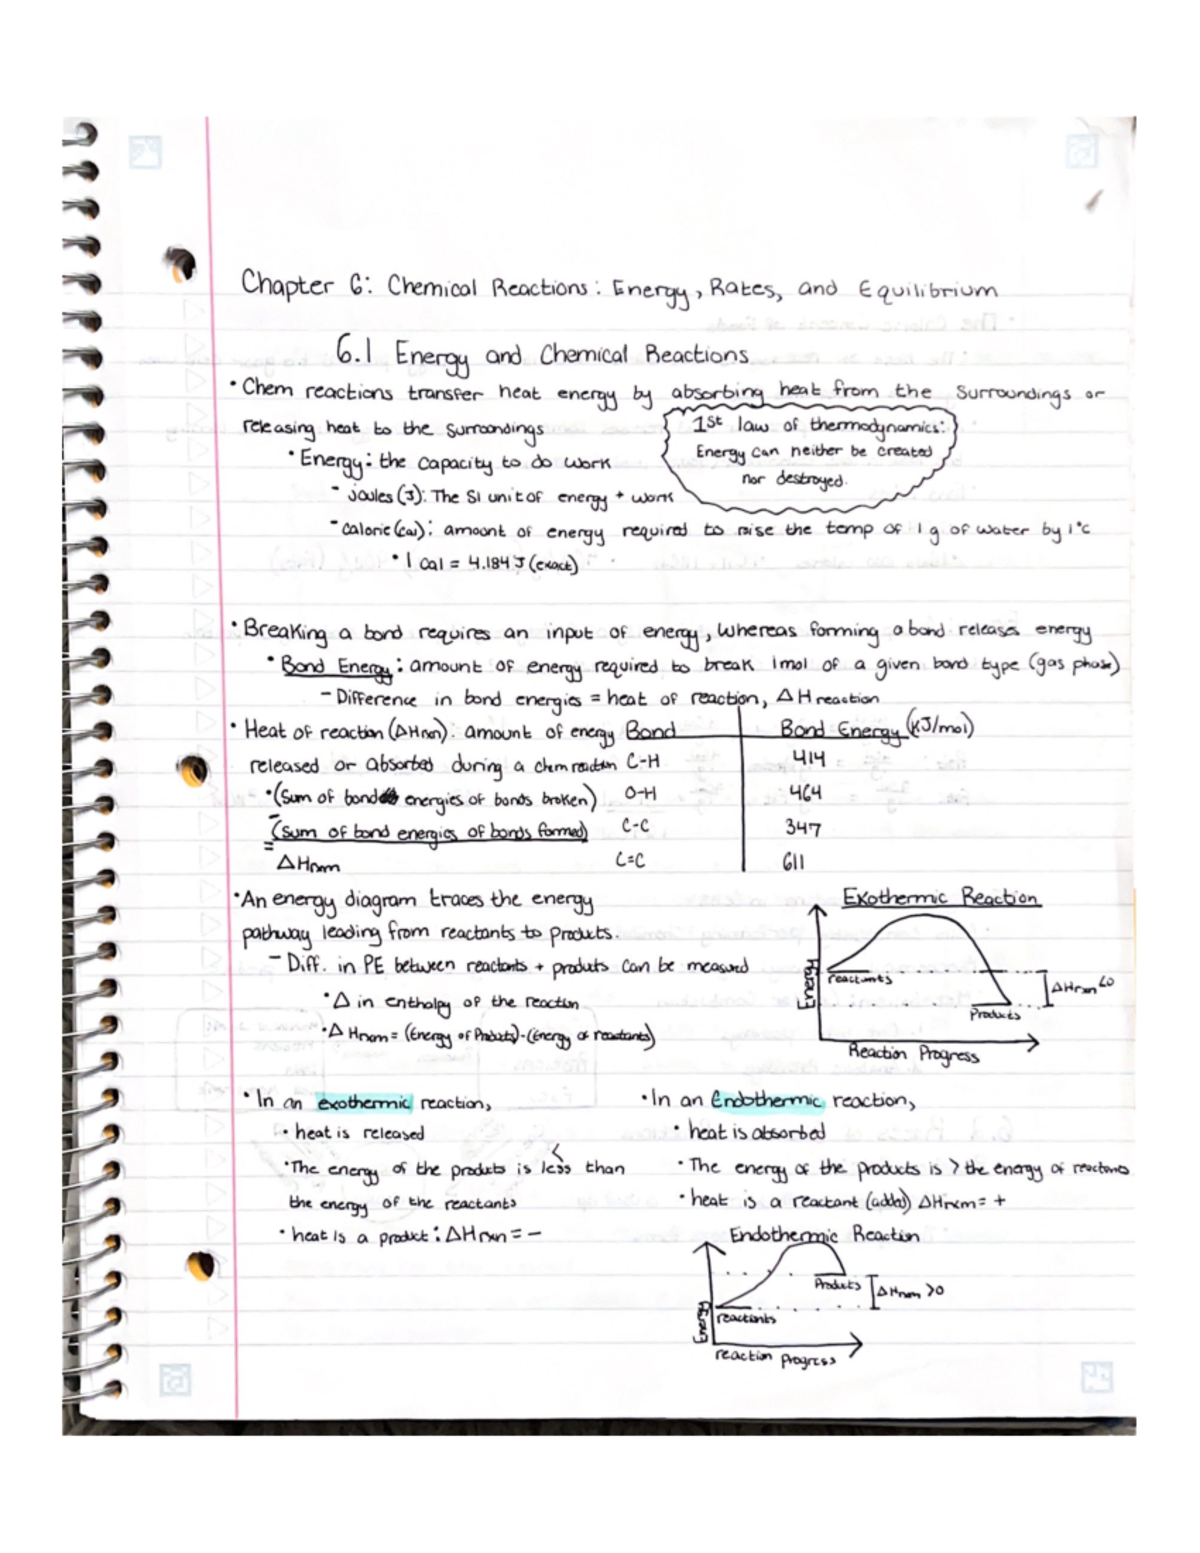 Chapter 6: Chemical Reactions: Energy, Rates, and Equilibrium
6.1 Energy and Chemical Reactions
• Chem reactions transfer heat energy by absorbing heat from the surroundings or
releasing heat to the surroundings
1st law of thermodynamics:
Energy can neither be created
nor destroyed.
• Energy: the capacity to do work
- joules (J): The SI unit of energy + work
- calorie (cal): amount of energy required to raise the temp of 1 g of water by 1°C
• 1 cal = 4.184 J (exact)
• Breaking a bond requires an input of energy, whereas forming a bond releases energy
• Bond Energy: amount of energy required to break 1mol of a given bond type (gas phase)
- Difference in bond energies = heat of reaction, ΔH reaction
• Heat of reaction (ΔHrxn): amount of energy
released or absorbed during a chem reaction
• (sum of bond energies of bonds broken)
- (sum of bond energies of bonds formed)
= ΔHrxn
Bond Bond Energy (KJ/mol)
C-H 414
O-H 464
C-C 347
C=C 611
• An energy diagram traces the energy
pathway leading from reactants to products.
- Diff. in PE between reactants + products can be measured
• Δ in enthalpy of the reaction
• ΔHrxn = (Energy of Products)-(Energy of reactants)
Exothermic Reaction
Energy
reactants
ΔHrxn <0
Products
Reaction Progress
• In an exothermic reaction,
• heat is released
<
• The energy of the products is less than
the energy of the reactants
• heat is a product: ΔHrxn = -
• In an Endothermic reaction,
• heat is absorbed
• The energy of the products is > the energy of reactants
• heat is a reactant (added) ΔHrxn = +
Endothermic Reaction
Energy
Products
ΔHrxn >0
reactants
reaction progress